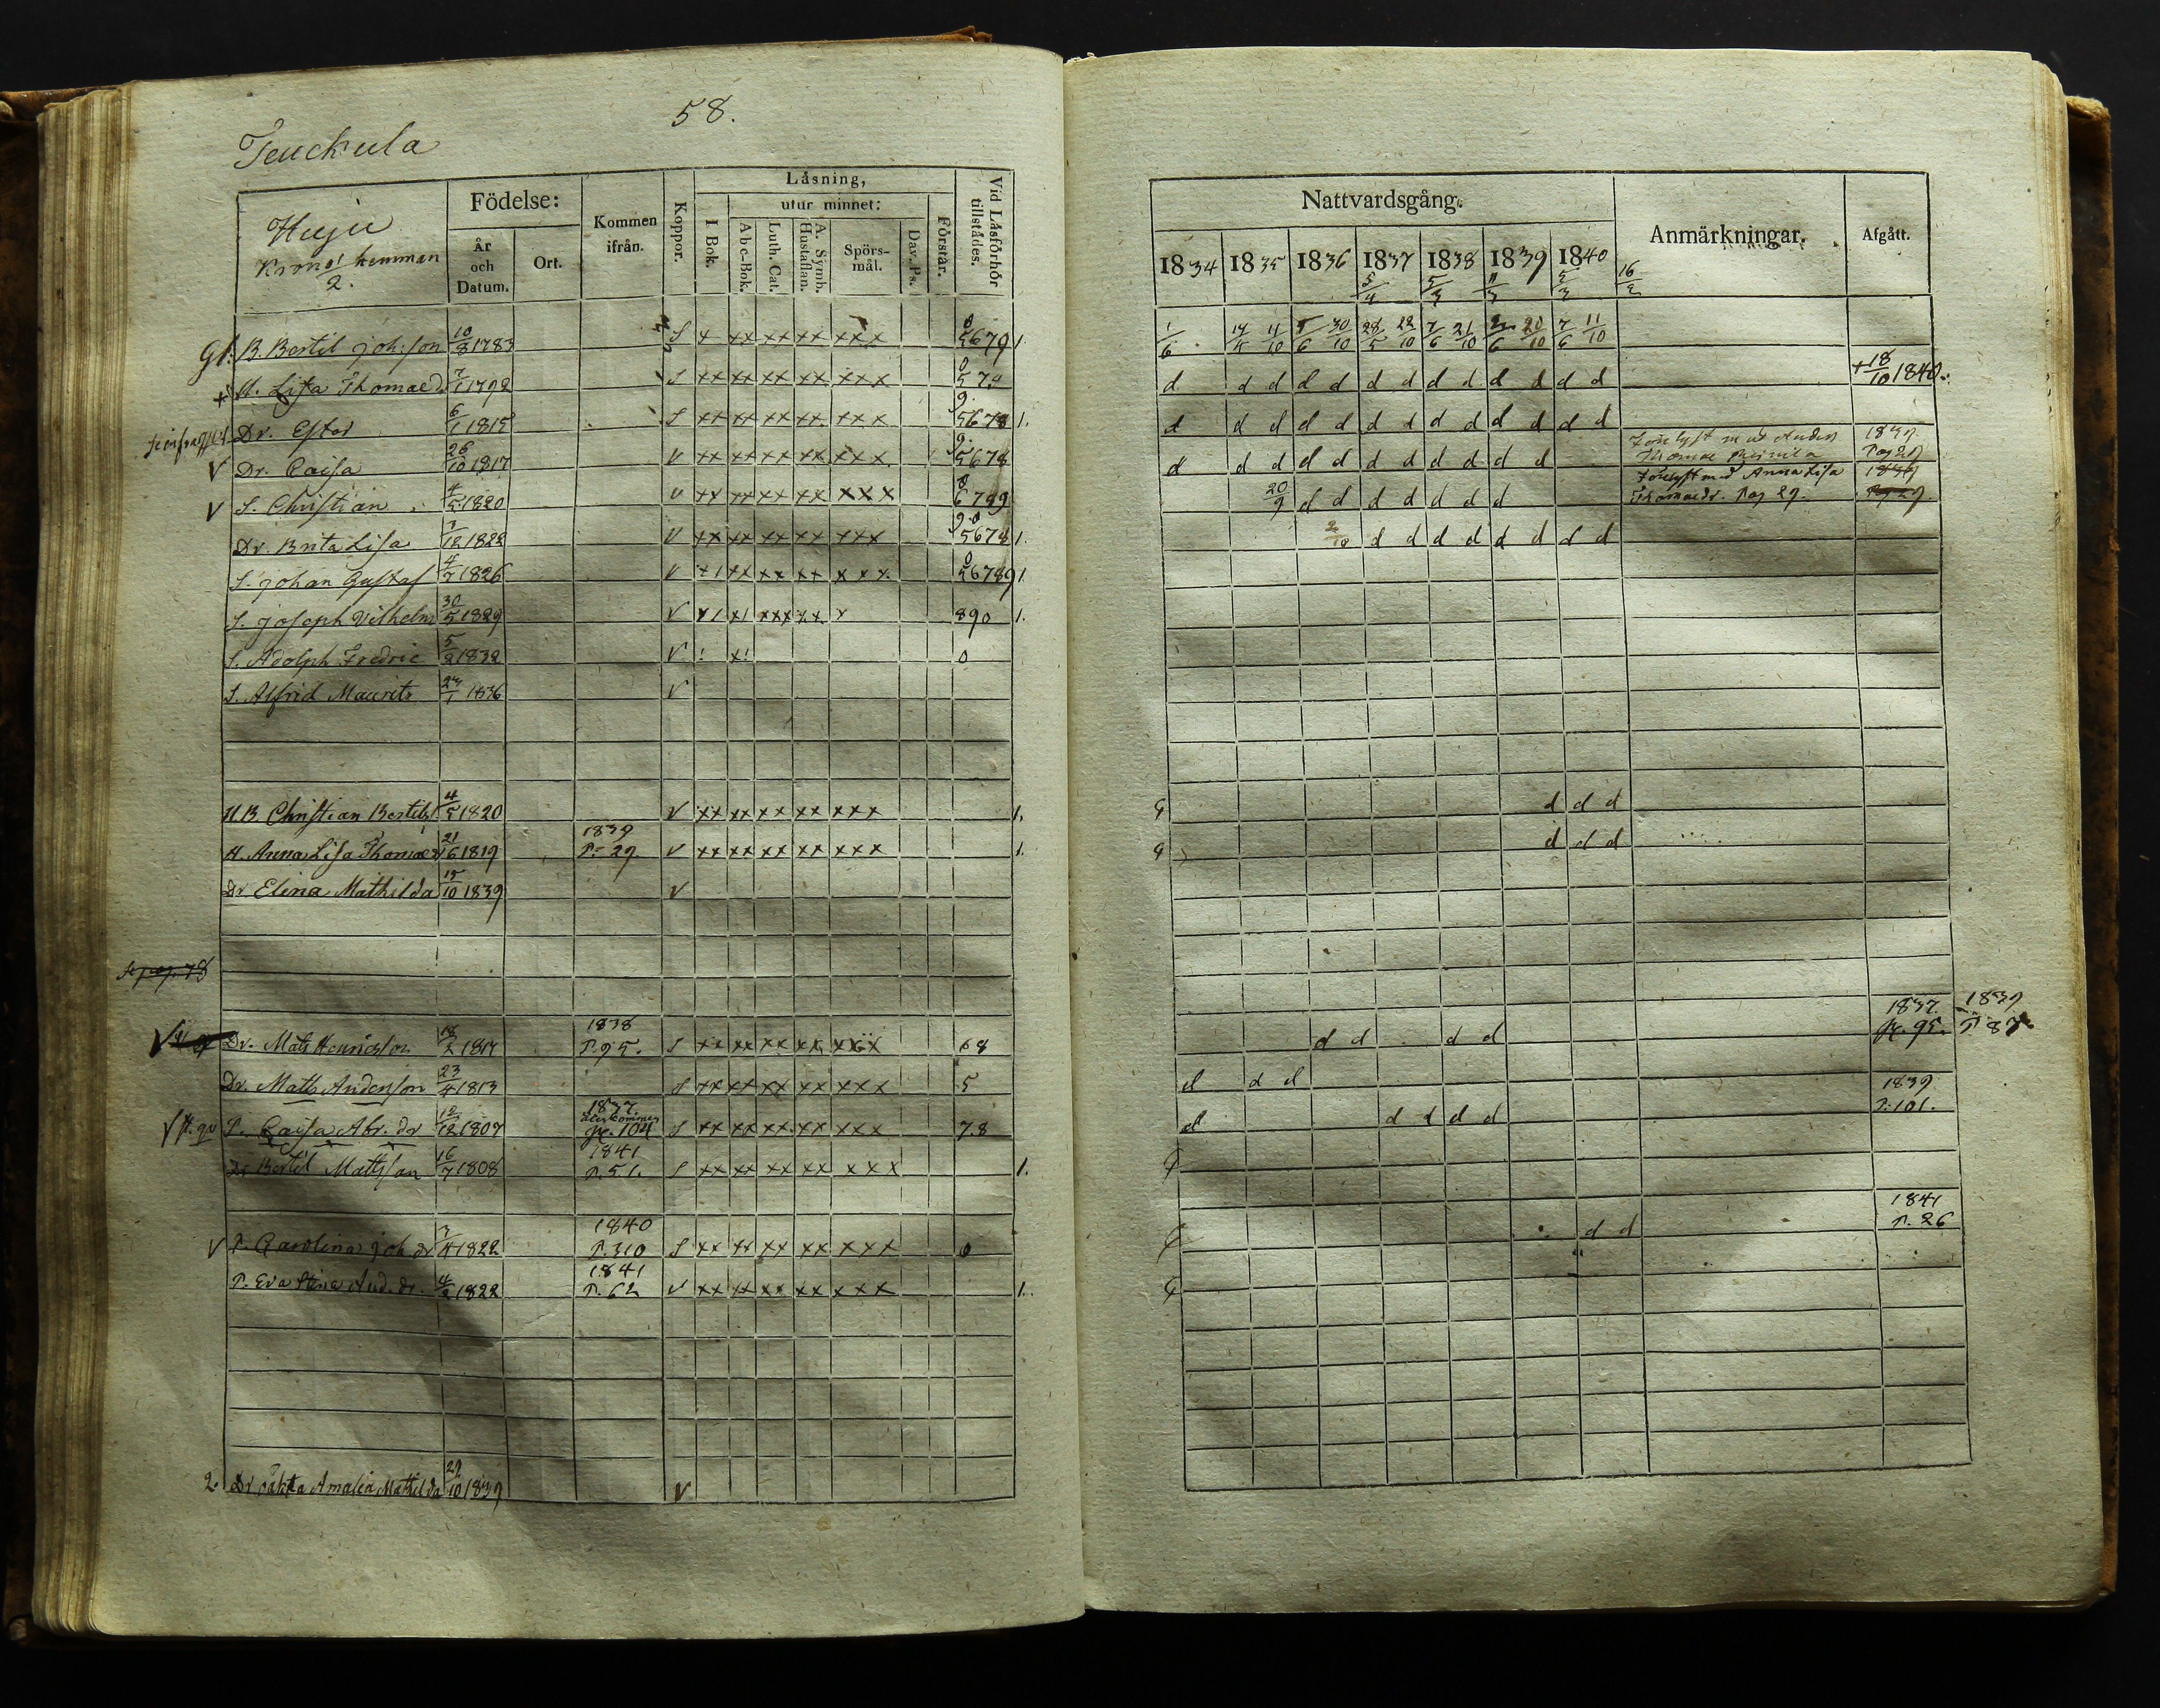 58.
Teuckula
Huju
Krono hemman
2.
Födelse:
År och Datum.
Ort.
Kommen ifrån.
Koppor.
Läsning,
I Bok.
utur minnet:
Abc-Bok.
Luth. Cat.
A. Symb. Hustaflan.
Spörs-mål.
Dav. Ps.
Förstår.
Vid Läsförhör tillstådes.
Gl. B. Bertil Joh:son 10/8 1783 S x xx xx xx xxx 0 5679 1.
+ H. Lisa Thomaed. 7/1 1792 S xx xx xx xx xxx 0 574
Dr. Ester 6/1 1815 S xx xx xx xx xxx 9. 5678 1.
V Dr. Caisa 26/10 1817 V xx xx xx xx xxx 9. 5678
V S. Christian 4/5 1820 V xx xx xx xx xxx 0 6789
Dr. Brita Lisa 3/12 1822 V xx xx xx xx xxx 9.0 5678 1.
S. Johan Gustaf 4/7 1826 V x1 xx xx xx xxx 0 56789 1.
S. Joseph Vilhelm 30/5 1829 V x1 x1 xxx xx x 890 1.
S. Adolph Fredric 5/2 1832 V ! x! 0
S. Alfrid Maurits 24/1 1836 V
N.B. Christian Bertils 4/5 1820 V xx xx xx xx xxx 1.
1839
H. Anna Lisa Thomaed 21/6 1819 P. 29. V xx xx xx xx xxx 1.
Dr Elina Mathilda 15/10 1839 V
se pag. 78
1838
Dr. Mats Henricsson 18/2 1817 P. 95. S xx xx xx xx xxx 68
Dr. Matts Andersson 23/4 1813 S xx xx xx xx xxx 5
1837 återkommen
P. Caisa Abr. dr 12/12 1807 pg. 104 S xx xx xx xx xxx 7.8
1841
Dr Bertil Mattsson 16/7 1808 P. 51. S xx xx xx xx xxx 1.
1840
V P. Carolina Joh. dr 3/4 1822 P. 310 S xx xx xx xx xxx 0
1841
P. Eva Stina And. dr. 4/2 1822 P. 62 V xx xx xx xx xxx 1.
2. Dr oäkta Amalia Mathilda 29/10 1839 V
Nattvardsgång.
Anmärkningar.
Afgått.
1834 1835 1836 1837 1838 1839 1840
5/4 5/3 11/3 5/3 16/2
1/6 14/5 4/10 5/6 30/10 28/5 22/10 7/6 21/10 2/6 20/10 7/6 11/10
d d d d d d d d d d d d d + 18/10 1840.
d d d d d d d d d d d d d
d d d d d d d d d d d Förelyst med Anders 1839
Thomae P. 29
20/9 d d d d d d d Förelyst med Anna Lisa 1839
Thomaedr. Pag 29. Pg 29
2/10 d d d d d d d d
d d d
d d d
1837. 1839
d d d d pg. 95. P 87
d d d
1839
d d d d d P. 101.
1841
d d P. 26